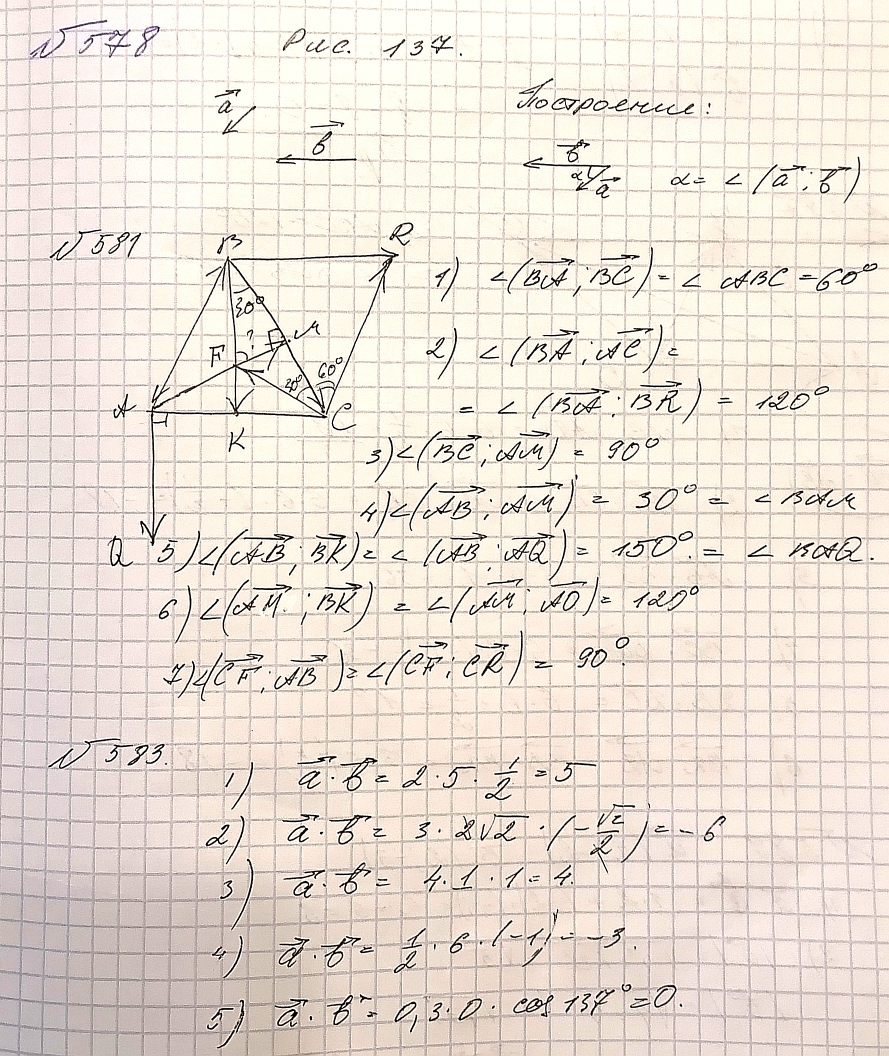 №578 Рис. 137.
a⃗ b⃗
Построение:
b⃗ α a⃗ α = ∠(a⃗; b⃗)
№581
B R
30°
F ? M
30° 60°
A K C
Q
1) ∠(BA⃗; BC⃗) = ∠ABC = 60°
2) ∠(BA⃗; AC⃗) =
= ∠(BA⃗; BR⃗) = 120°
3) ∠(BC⃗; AM⃗) = 90°
4) ∠(AB⃗; AM⃗) = 30° = ∠BAM
5) ∠(AB⃗; BK⃗) = ∠(AB⃗; AQ⃗) = 150°. = ∠BAQ.
6) ∠(AM⃗; BK⃗) = ∠(AM⃗; AQ⃗) = 120°
7) ∠(CF⃗; AB⃗) = ∠(CF⃗; CR⃗) = 90°.
№583.
1) a⃗ · b⃗ = 2 · 5 · 1/2 = 5
2) a⃗ · b⃗ = 3 · 2√2 · (-√2/2) = -6
3) a⃗ · b⃗ = 4 · 1 · 1 = 4.
4) a⃗ · b⃗ = 1/2 · 6 · (-1) = -3.
5) a⃗ · b⃗ = 0,3 · 0 · cos 137° = 0.